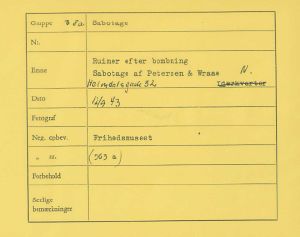 Gruppe 3 Sabotage
Nr.
Emne Ruiner efter bombning
Sabotage af Petersen & Wraae N.
32
Dato 12/9 43
Fotograf
Neg. opbev. Frihedsmuseet
" nr. (563 a)
Forbehold
Særlige
bemærkninger